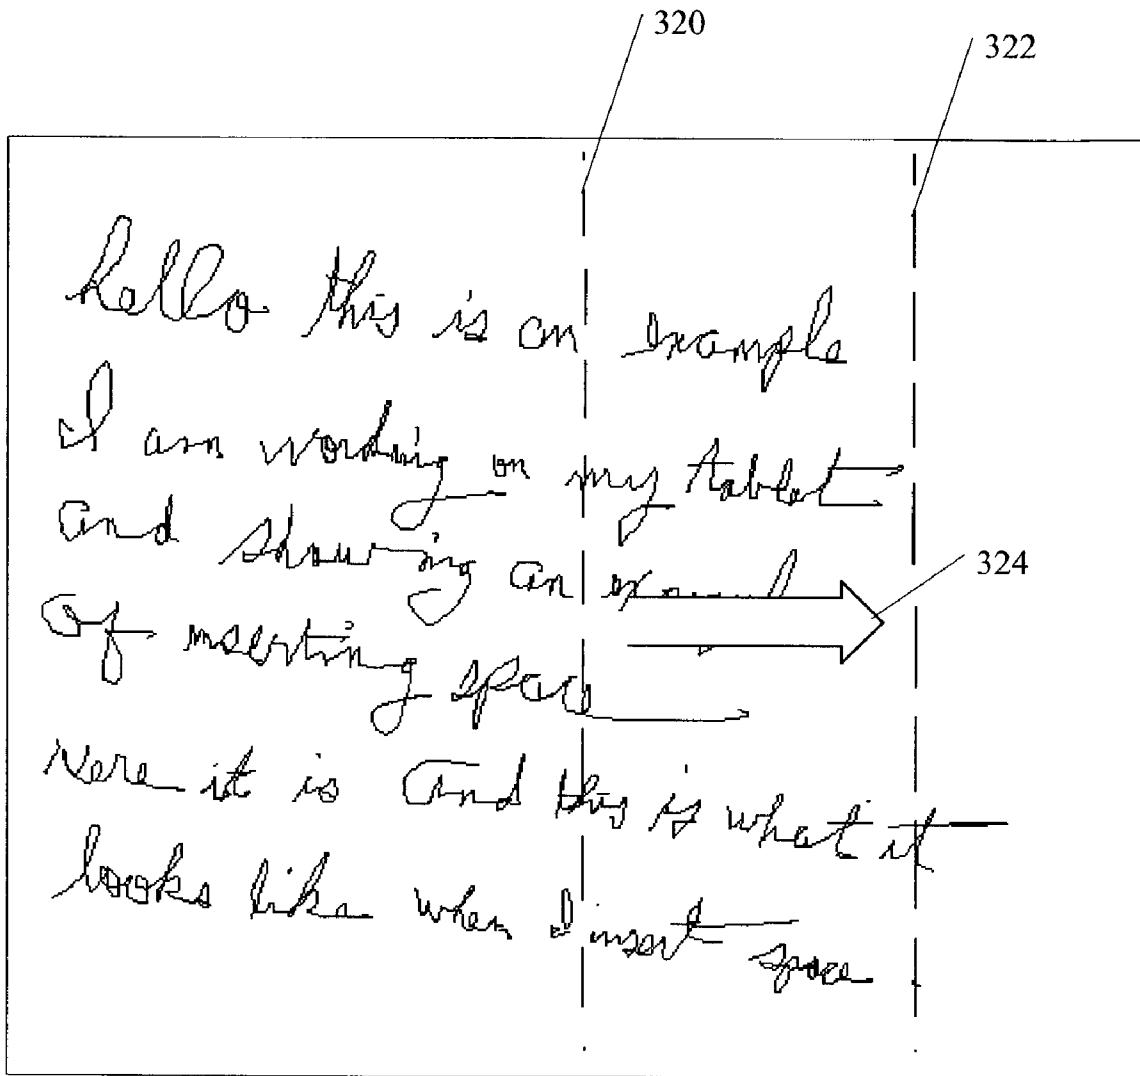 320
322
hello this is an example
I am working on my tablet
and showing an
324
of inserting space
here it is and this is what it
looks like when I insert space